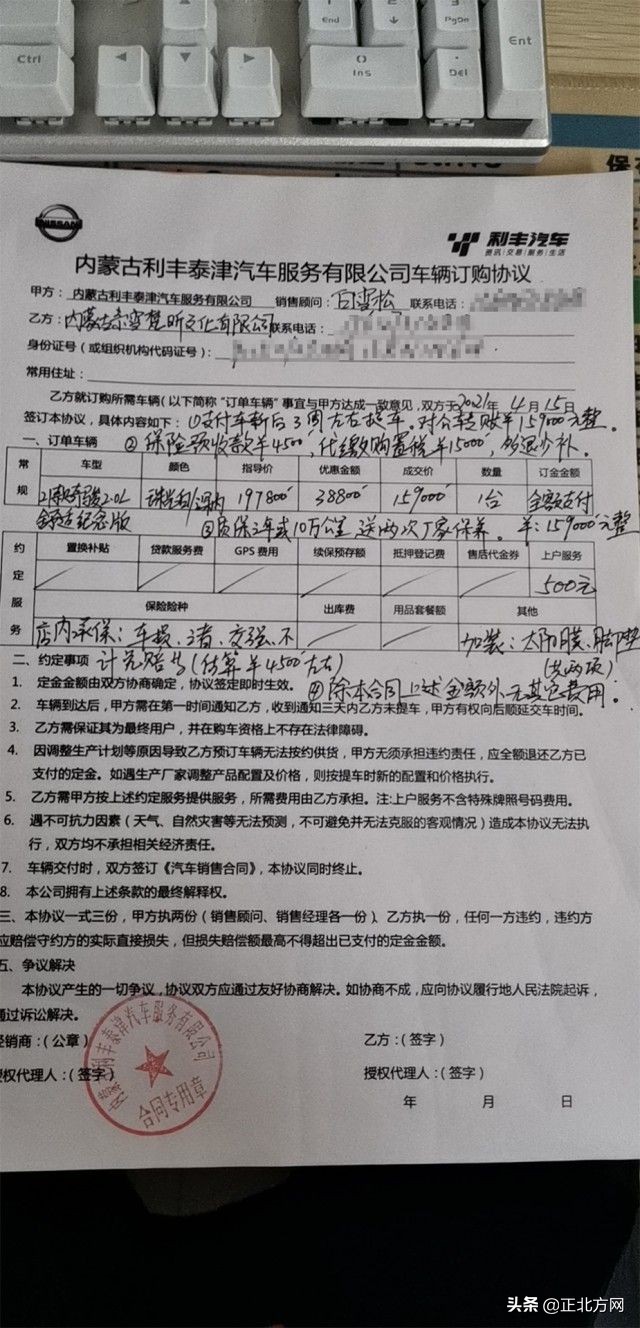 Ctrl
End
PgDn
Ent
0
Ins
Del
NISSAN
利丰汽车
资讯|交易|服务|生活
内蒙古利丰泰津汽车服务有限公司车辆订购协议
甲方：内蒙古利丰泰津汽车服务有限公司 销售顾问：白雪松 联系电话：
乙方：内蒙古 文化有限公司 联系电话：
身份证号（或组织机构代码证号）：
常用住址：
乙方就订购所需车辆（以下简称“订单车辆”事宜与甲方达成一致意见，双方于2021年4月15日
签订本协议，具体内容如下：①支付车款后3周左右提车。对公转账¥159000元整。
一、订单车辆 ②保险预收款¥4500，代缴购置税¥15000，多退少补。
常规 车型 颜色 指导价 优惠金额 成交价 数量 订金金额
21款奇骏2.0L 珠光白/ 内 197800 38800 159000 1台 全额支付
舒适纪念版 ③质保三年或10万公里 送两次厂家保养。 ¥：159000元整
约定服务 置换补贴 贷款服务费 GPS费用 续保预存额 抵押登记费 售后代金券 上户服务
500元
保险险种 出库费 用品套餐额 其他
店内承保：车损、三者、交强、不 加装：太阳膜、脚垫
二、约定事项 计免赔等（估算¥4500左右） （共两项）
1. 定金金额由双方协商确定，协议签定即时生效。 ④除本合同上述金额外无其它费用：
2. 车辆到达后，甲方需在第一时间通知乙方，收到通知三天内乙方未提车，甲方有权向后顺延交车时间。
3. 乙方需保证其为最终用户，并在购车资格上不存在法律障碍。
4. 因调整生产计划等原因导致乙方预订车辆无法按约供货，甲方无须承担违约责任，应全额退还乙方已
支付的定金。如遇生产厂家调整产品配置及价格，则按提车时新的配置和价格执行。
5. 乙方需甲方按上述约定服务提供服务，所需费用由乙方承担。注:上户服务不含特殊牌照号码费用。
6. 遇不可抗力因素（天气、自然灾害等无法预测，不可避免并无法克服的客观情况）造成本协议无法执
行，双方均不承担相关经济责任。
7. 车辆交付时，双方签订《汽车销售合同》，本协议同时终止。
8. 本公司拥有上述条款的最终解释权。
三、本协议一式三份，甲方执两份（销售顾问、销售经理各一份）、乙方执一份，任何一方违约，违约方
应赔偿守约方的实际直接损失，但损失赔偿额最高不得超出已支付的定金金额。
五、争议解决
本协议产生的一切争议，协议双方应通过友好协商解决。如协商不成，应向协议履行地人民法院起诉，
通过诉讼解决。
经销商：（公章） 乙方：（签字）
授权代理人：（签字） 授权代理人：（签字）
年 月 日
内蒙古利丰泰津汽车服务有限公司
合同专用章
头条 @正北方网